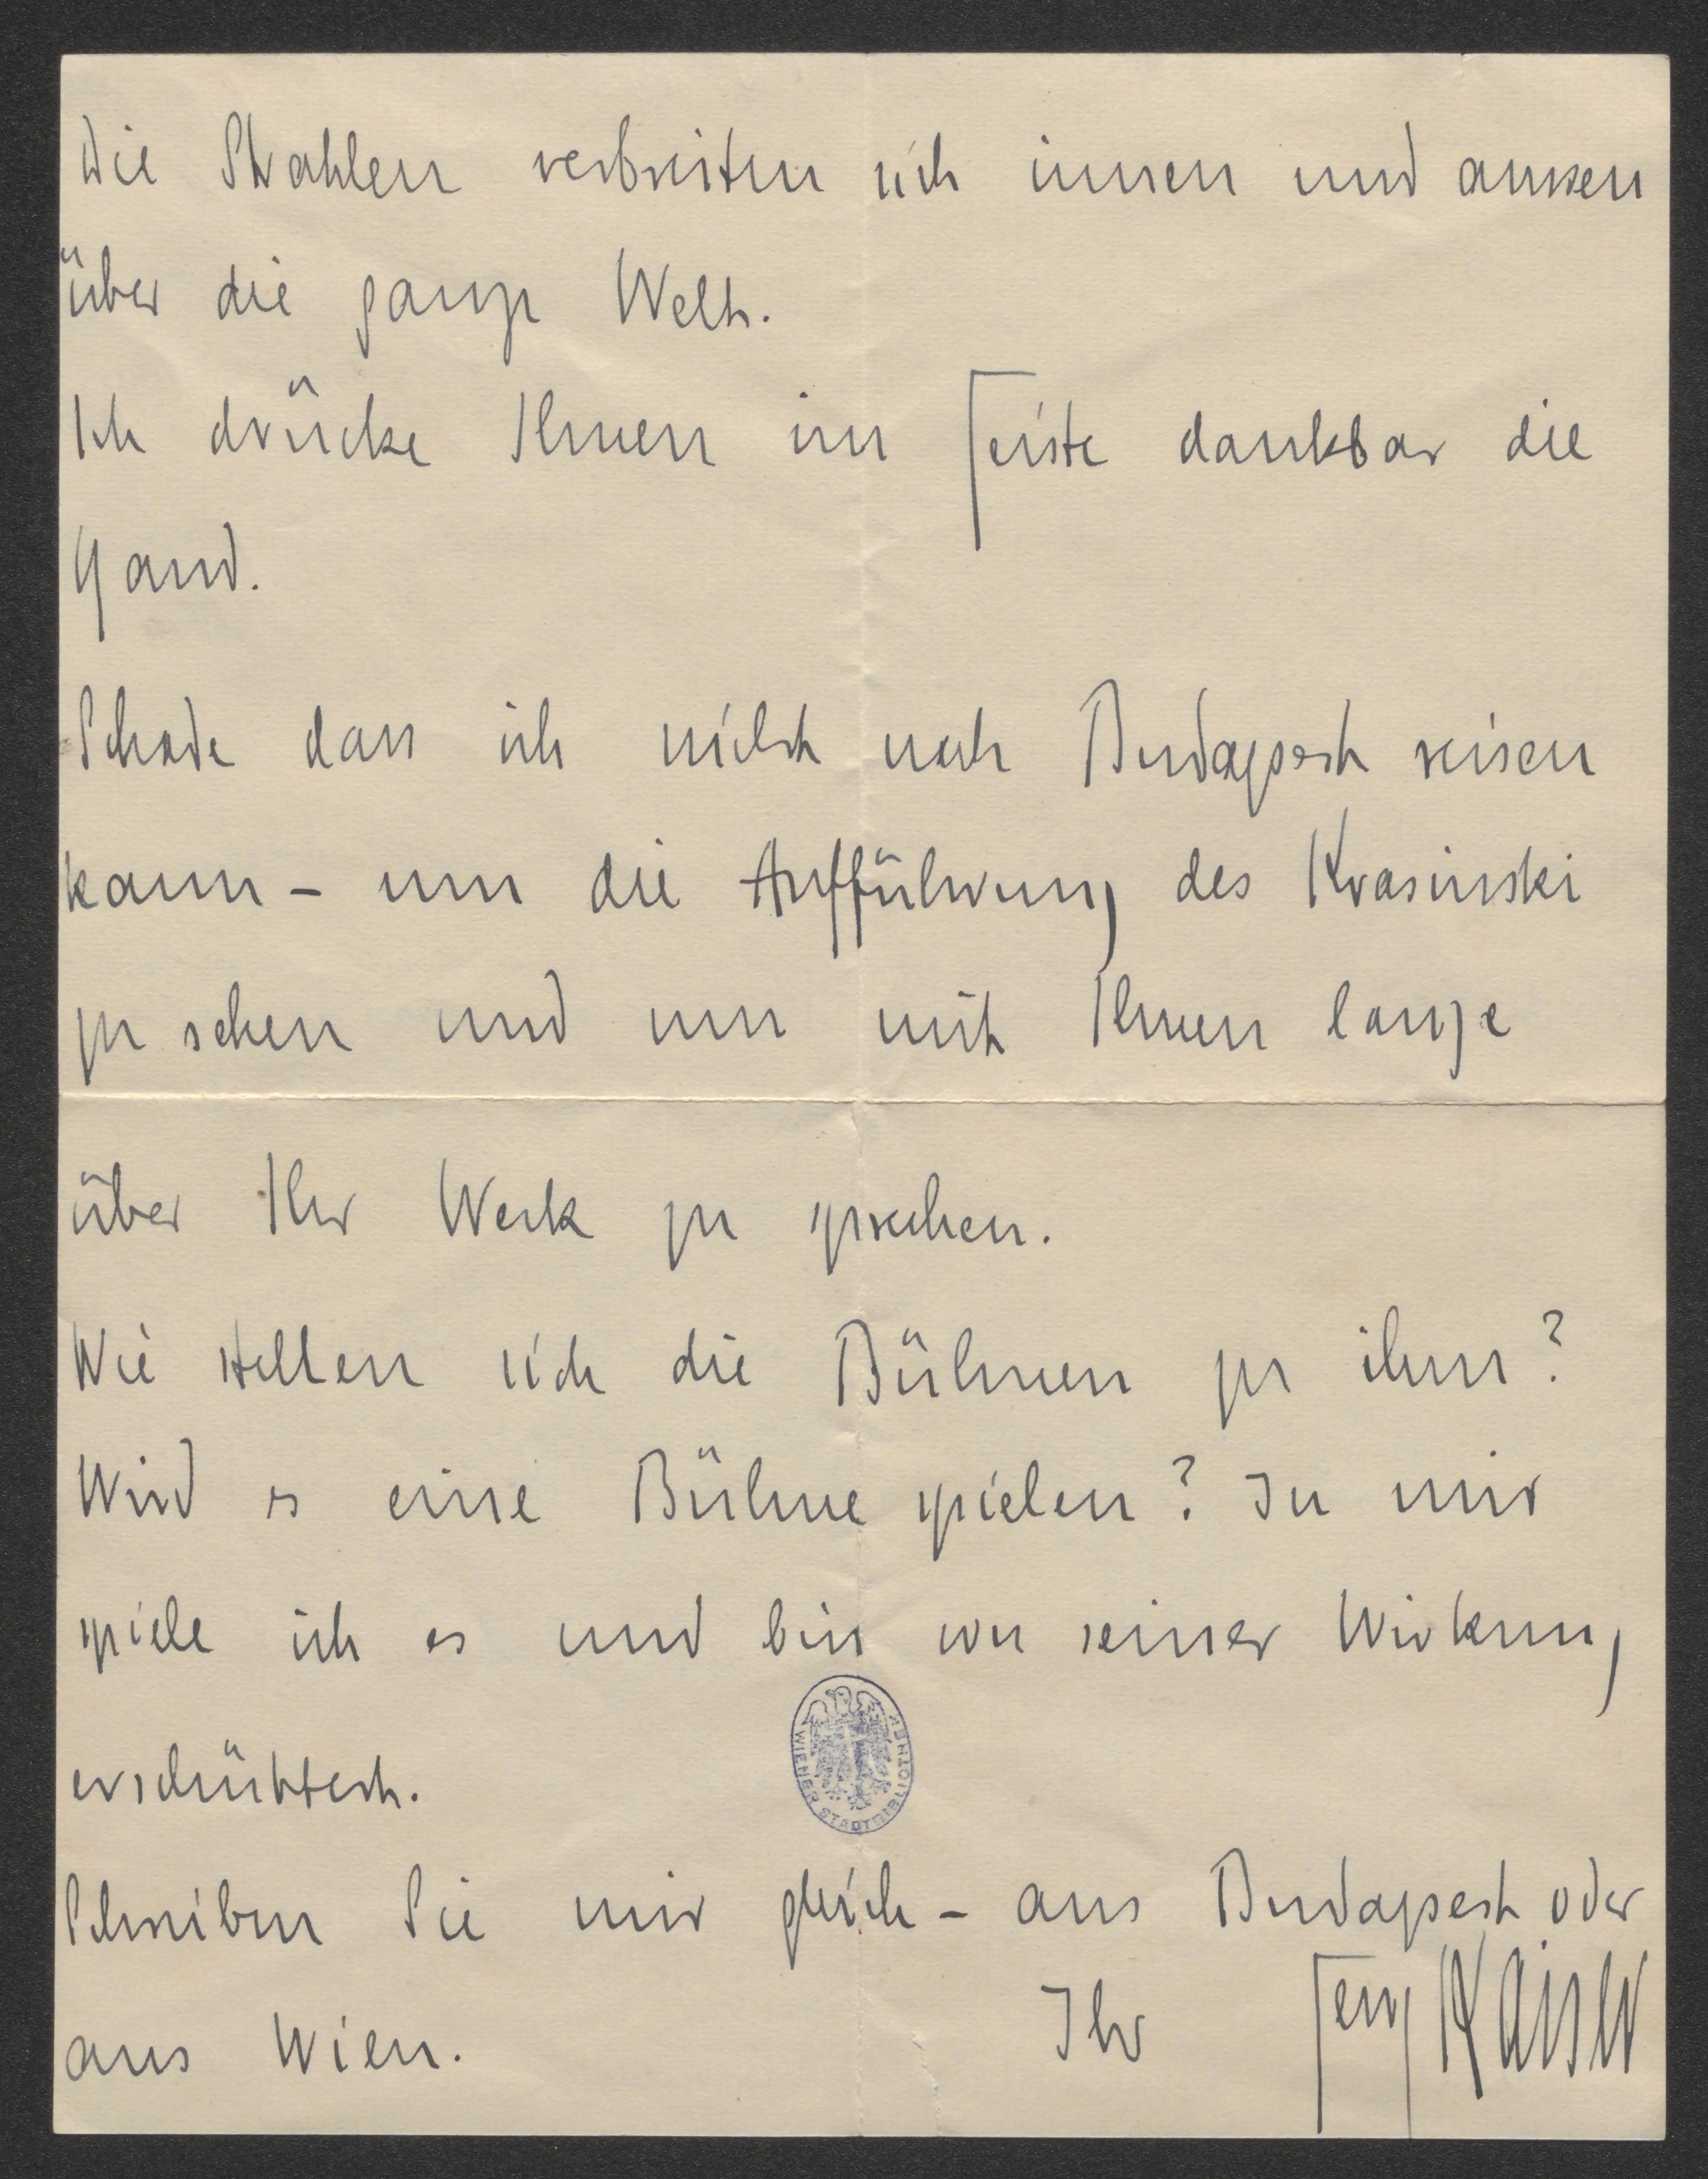 die Strahlen verbreiten sich innen und aussen
über die ganze Welt.
Ich drücke Ihnen im Geiste dankbar die
Hand.
Schade dass ich nicht nach Budapest reisen
kann – um die Aufführung des Krasinski
zu sehen und um mit Ihnen lange
über Ihr Werk zu sprechen.
Wie stellen sich die Bühnen zu ihm?
Wird es eine Bühne spielen? In mir
spiele ich es und bin von seiner Wirkung
erschüttert.
WIENER STADTBIBLIOTHEK
Schreiben Sie mir gleich – aus Budapest oder
aus Wien. Ihr Georg Kaiser